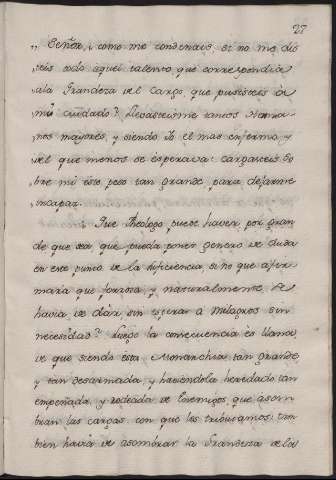 27
,, Señor, ¿ como me condenais, si no me dis
teis todo aquel talento que correspondia
a la Grandeza del Cargo que pusisteis à
mi cuidado? Llevasteisme tantos Herma
nos mayores, y siendo Yo el mas enfermo y
del que menos se esperava: cargasteis So
bre mi este peso tan grande, para dejarme
incapaz.
Que Theologo puede haver por gran
de que sea que pueda poner genero de duda
en este punto de la suficiencia, sino que afir
mara que forzosa, y naturalmente Se
havia de dár, sin esperar à Milagros sin
necesidad? Luego la consequencia es llana,
de que siendo esta Monarchia tan grande,
y tan desarmada, y haviendola heredado tan
empeñada, y rodeada de Enemigos, que asom
bran las cargas, con que los tributamos: tam
bien havia de asombrar la Grandeza de los